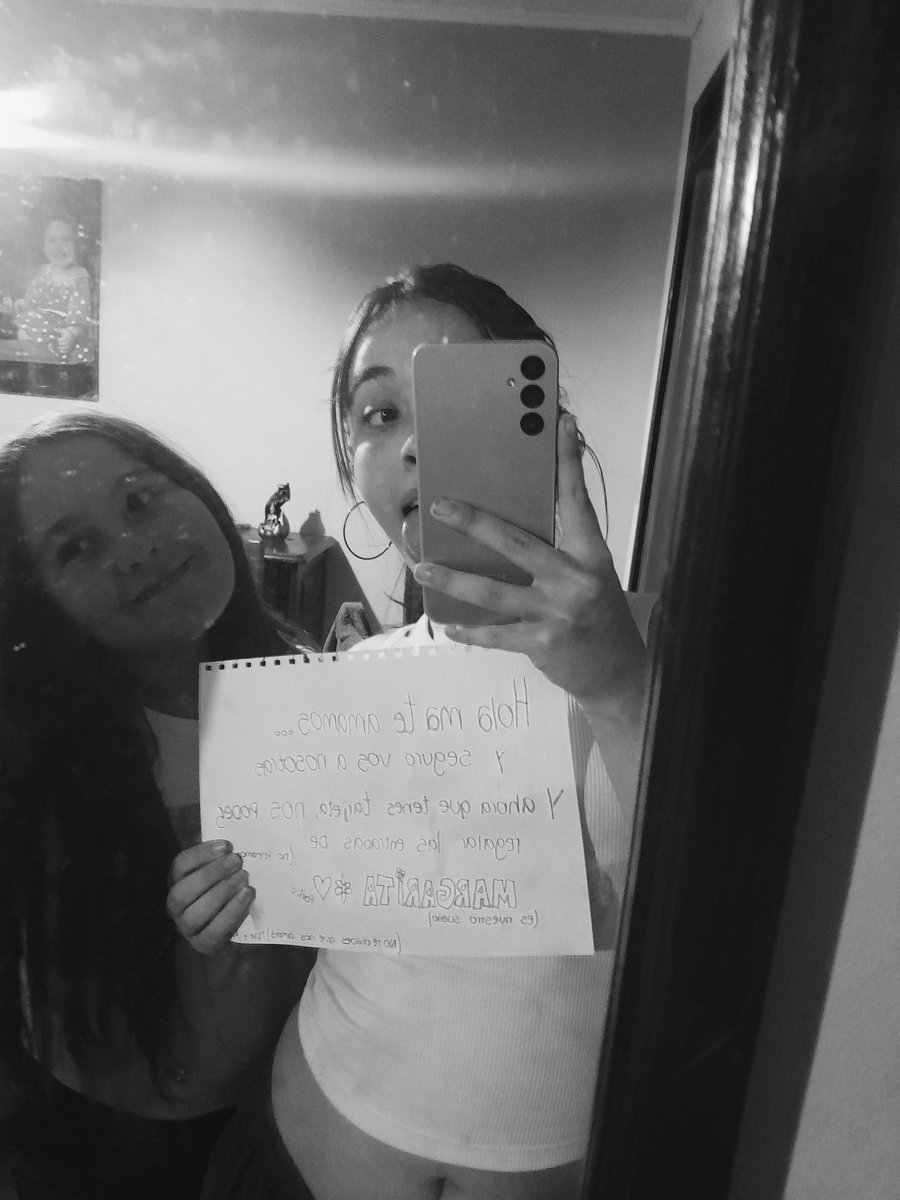 Hola ma te amamos...
Y seguro vos a nosotras
Y ahora que tenes tarjeta, nos PODES
regalar las entradas DE
(no
MARGARITA
(es nuestro sueño)
(NO te olvides que nos amas)